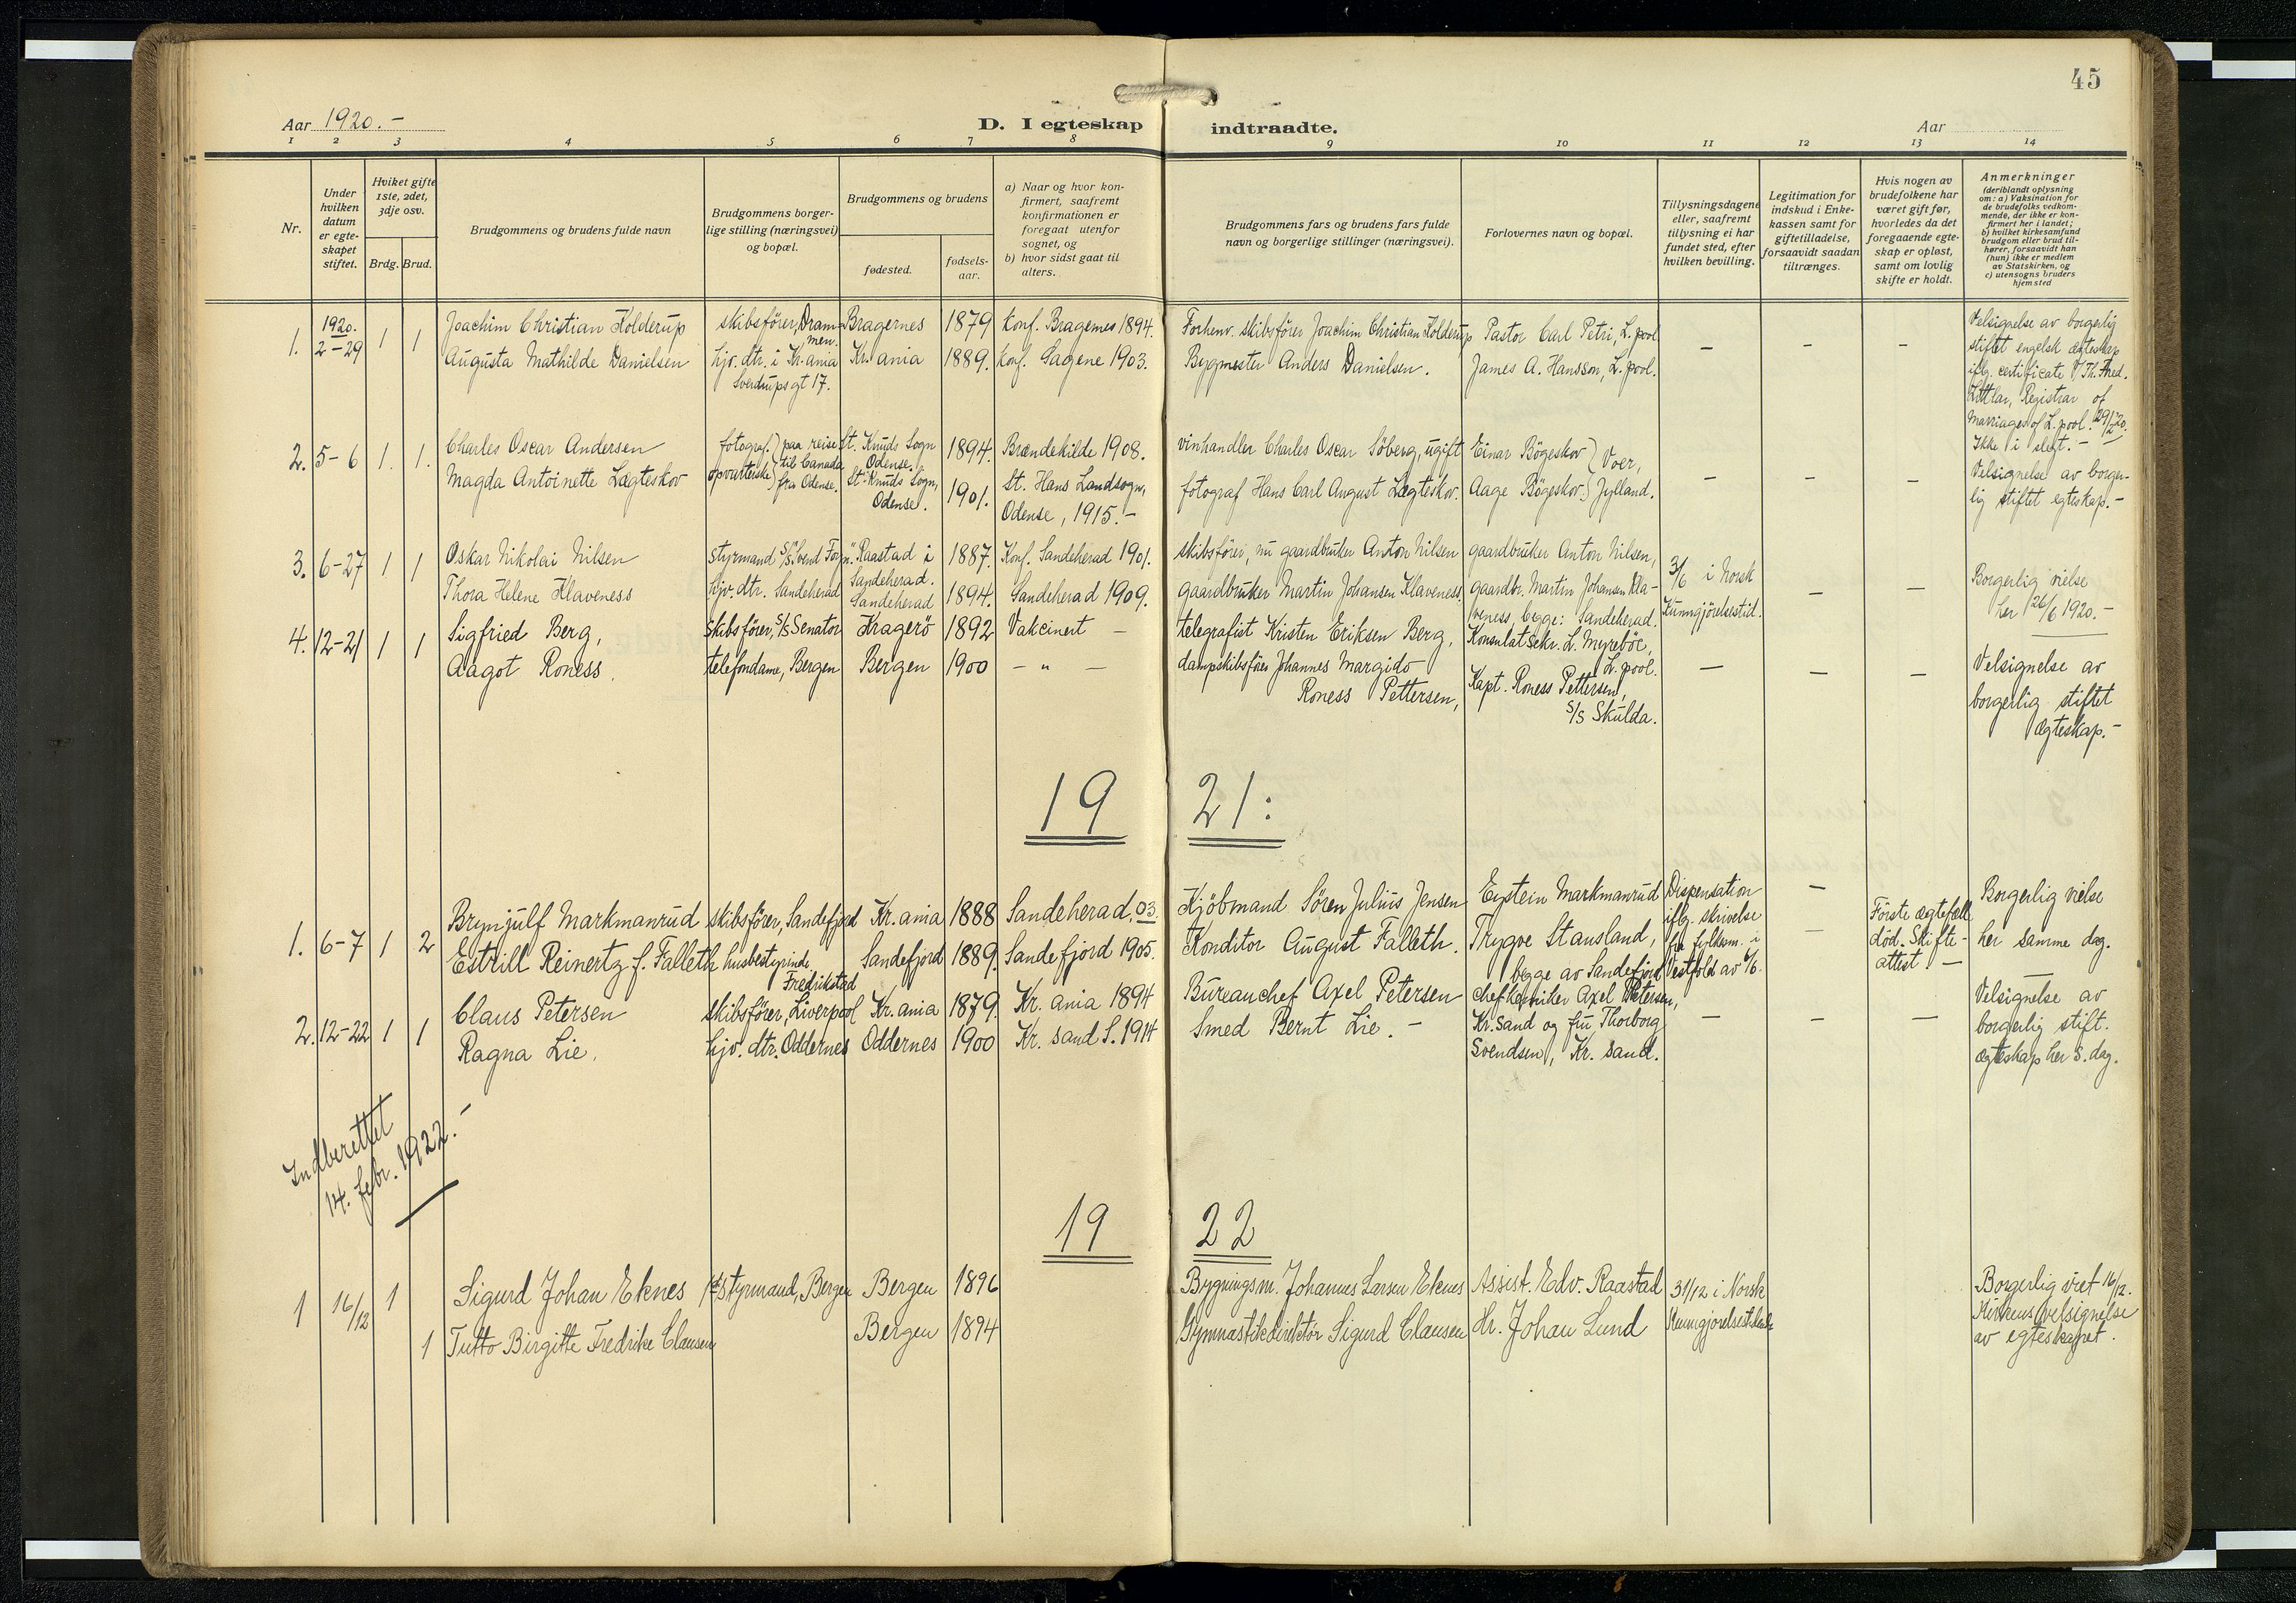 45
Aar 1920.-
D. I egteskap indtraadte.
Aar
1 2 3 4 5 6 7 8 9 10 11 12 13 14
Nr.
Under hvilken datum er egte-skapet stiftet.
Hviket gifte 1ste, 2det, 3dje osv.
Brdg. Brud.
Brudgommens og brudens fulde navn
Brudgommens borger-lige stilling (næringsvei) og bopæl.
Brudgommens og brudens
fødested.
fødsels-aar.
a) Naar og hvor kon-firmert, saafremt konfirmationen er foregaat utenfor sognet, og
b) hvor sidst gaat til alters.
Brudgommens fars og brudens fars fulde navn og borgerlige stillinger (næringsvei).
Forlovernes navn og bopæl.
Tillysningsdagene eller, saafremt tillysning ei har fundet sted, efter hvilken bevilling.
Legitimation for indskud i Enke-kassen samt for giftetilladelse, forsaavidt saadan tiltrænges.
Hvis nogen av brudefolkene har været gift før, hvorledes da det foregaaende egte-skap er opløst, samt om lovlig skifte er holdt.
Anmerkninger (deriblandt oplysning om: a) Vaksination for de brudefolks vedkom-mende, der ikke er kon-firmert her i landet; b) hvilket kirkesamfund brudgom eller brud til-hører, forsaavidt han (hun) ikke er medlem av Statskirken, og c) utensogns bruders hjemsted
1. 1920. 2-29 1 1
Joachim Christian Kolderup skibsförer, Drammen. Bragernes 1879 Konf. Bragernes 1894. Forhenv. skibsförer Joachim Christian Kolderup Pastor Carl Petri, L.pool
Augusta Mathilde Danielsen hjv. dtr. i Kr.ania Sverdrupsgt 17. Kr.ania 1889. konf. Sagene 1903. Bygmester Anders Danielsen. James A. Hansson, L.pool.
- - -
Velsignelse av borgerlig
stiftet engelsk ægteskap
iflg. certificate
Registrar of
Marriages of L.pool. 29/2 20.
Ikke i slegt.-
2. 5-6 1. 1.
Charles Oscar Andersen fotograf. St. Knuds Sogn Odense. 1894. Brændekilde 1908. vinhandler Charles Oscar Söberg, ugift Einar Bögeskov
Magda Antoinette Lægteskov opvarterske paa reise til Canada fra Odense. St. Knuds Sogn, Odense. 1901. St. Hans Landsogn, Odense, 1915.- fotograf Hans Carl August Lægteskov. Aage Bögeskov. Voer, Jylland.
- - -
Velsignelse av borger-
lig stiftet egteskap.-
3. 6-27 1 1
Oskar Nikolai Nilsen styrmand S/S "Svend Foyn". Raastad i Sandeherad. 1887. Konf. Sandeherad 1901. skibsförer, nu gaardbruker Anton Nilsen gaardbruker Anton Nilsen,
Thora Helene Klaveness hjv. dtr. Sandeherad Sandeherad 1894. Sandeherad 1909. gaardbruker Martin Johansen Klaveness. gaardbr. Martin Johansen Kla-
veness, begge: Sandeherad.
3/6 i Norsk
Kunngjörelsestid.
- -
Borgerlig vielse
her 26/6 1920.-
4. 12-21 1 1
Sigfried Berg, Skibsförer, S/S Senator Kragerö 1892 Vakcinert - telegrafist Kristen Eriksen Berg, Konsulatsekr. L. Myreböe, L.pool.
Aagot Roness. telefondame, Bergen Bergen 1900 - " - dampskibsförer Johannes Margido
Roness Pettersen, Kapt. Roness Pettersen, S/S Skulda.
- - -
Velsignelse av
borgerlig stiftet
ægteskap.-
19 21:
1. 6-7 1 2
Brynjulf Markmanrud skibsförer, Sandefjord Kr.ania 1888 Sandeherad, 03. Kjöbmand Sören Julius Jensen Eystein Markmanrud
Estrill Reinertz f. Falleth husbestyrinde Fredrikstad Sandefjord 1889. Sandefjord 1905. Konditor August Falleth. Trygve Stausland,
begge av Sandefjord
Dispensation
iflg. skrivelse
fra fylkesm. i
Vestfold av 6/6.
-
-
Förste ægtefælle
död. Skifte-
attest -
Borgerlig vielse
her samme dag.
2. 12-22 1 1
Claus Petersen skibsförer, Liverpool Kr.ania 1879. Kr.ania 1894 Bureauchef Axel Petersen Axel Petersen,
Ragna Lie. hjv. dtr. Oddernes Oddernes 1900 Kr.sand S. 1914 Smed Bernt Lie.- Kr.sand og fru Thorborg
Svendsen, Kr.sand.
- - -
Velsignelse av
borgerlig stift.
ægteskap her s. dag.
Indberettet
14. febr. 1922.-
19 22
1 16/12 1
Sigurd Johan Eknes 1ste styrmand, Bergen Bergen 1896 Bygningsm. Johannes Larsen Eknes Assist. Edv. Raastad 31/12 i Norsk
1 Tutto Birgitte Fredrike Clausen Bergen 1894 Gymnastikdirektör Sigurd Clausen Hr. Johan Lund
Borgerlig viet 16/12.
Kirkens velsignelse
av egteskapet.